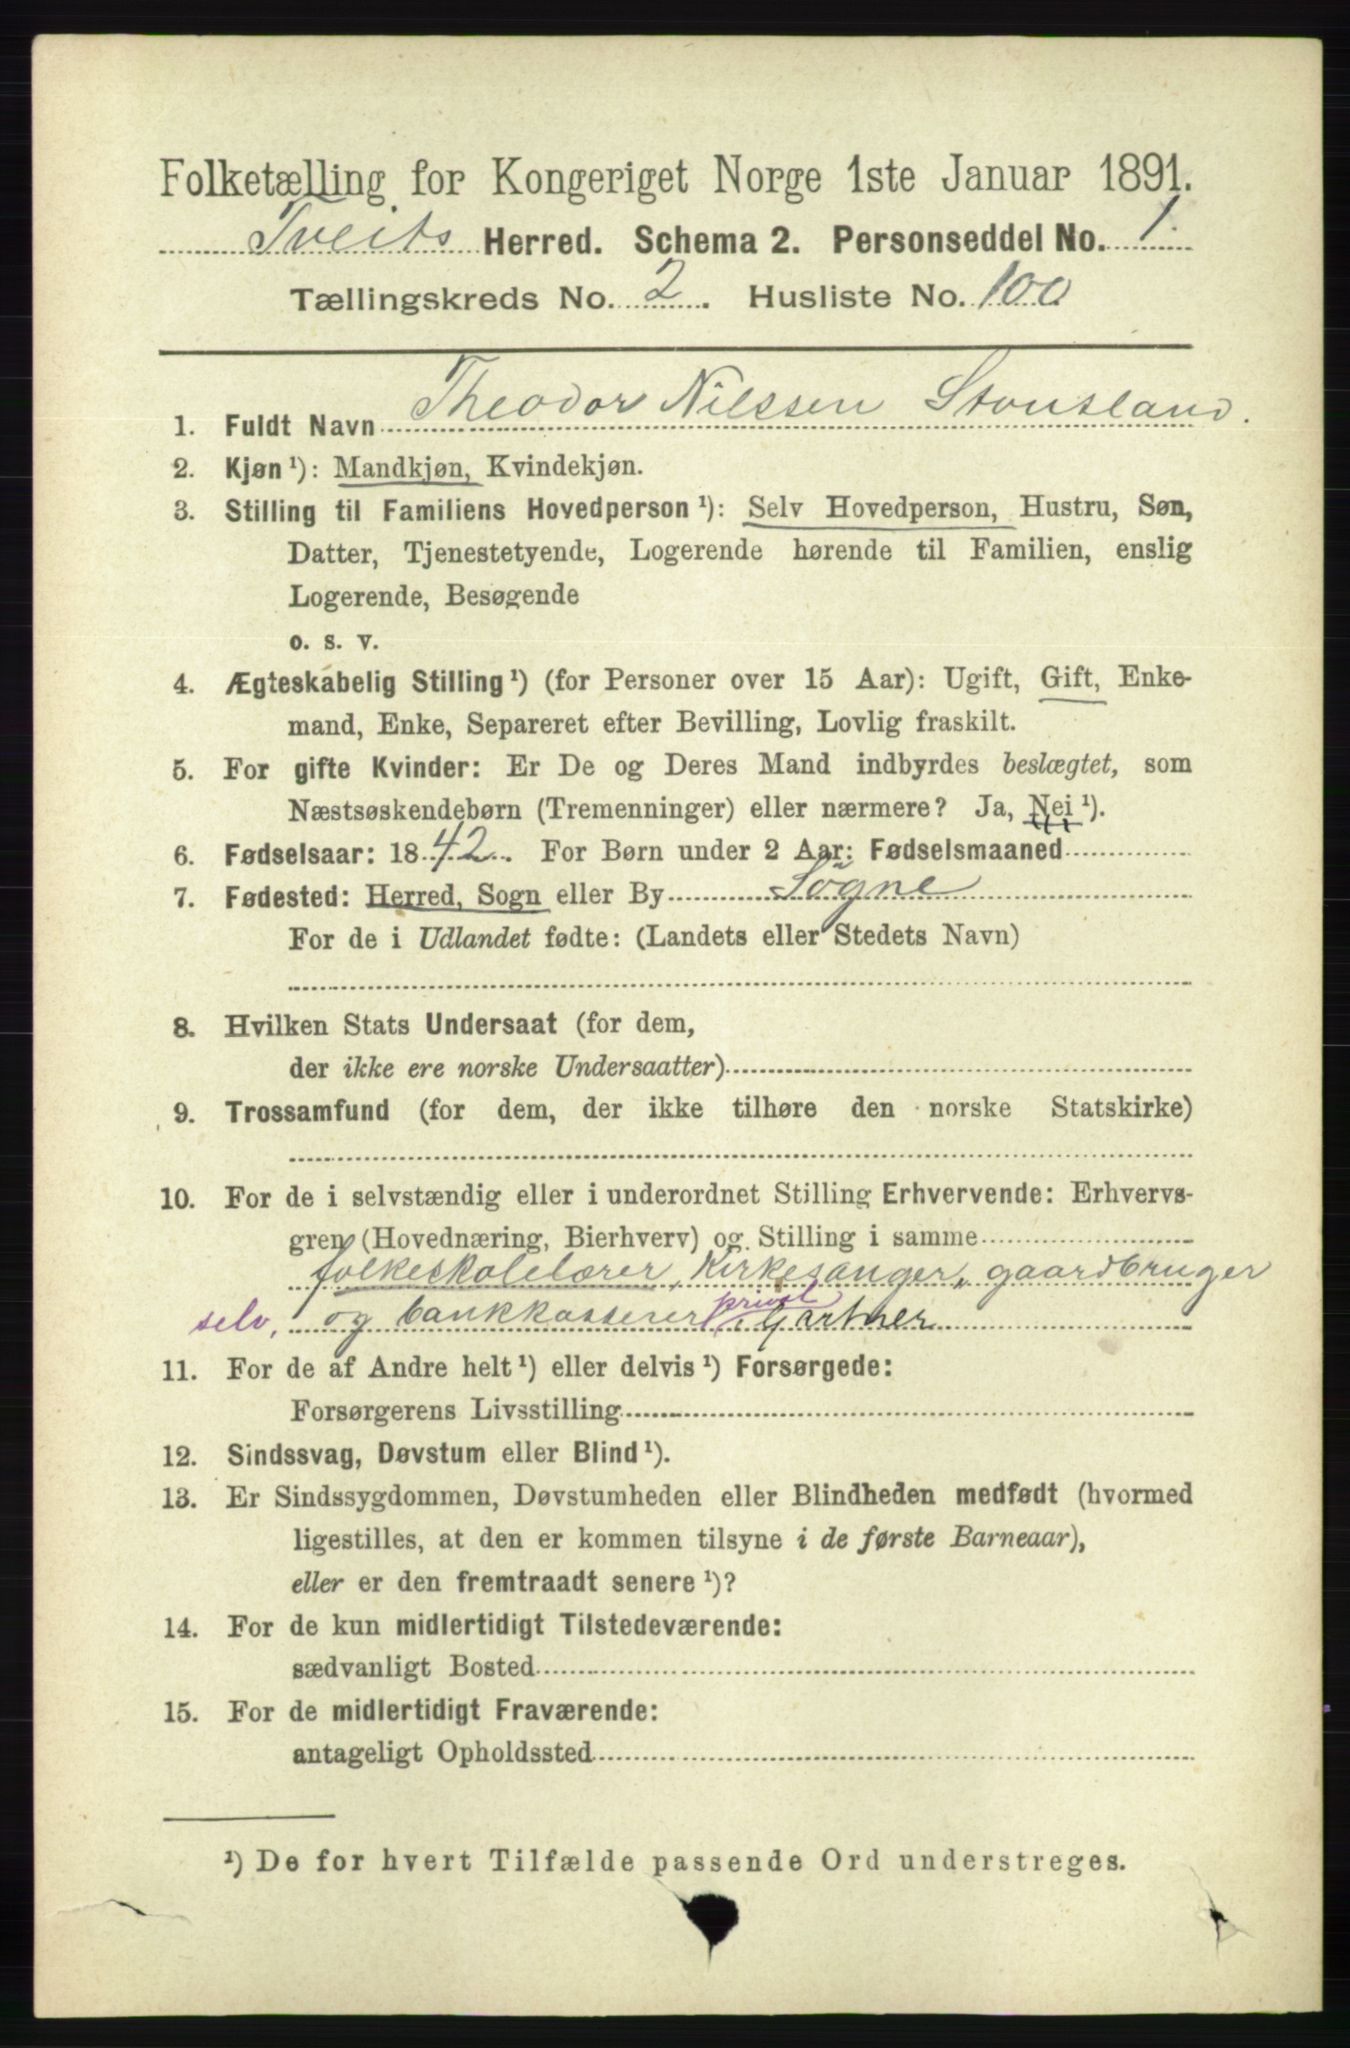 Folketælling for Kongeriget Norge 1ste Januar 1891.
Tveits Herred. Schema 2. Personseddel No. 1.
Tællingskreds No. 2. Husliste No. 100
1. Fuldt Navn Theodor Nilssen Stousland.
2. Kjøn ¹): Mandkjøn, Kvindekjøn.
3. Stilling til Familiens Hovedperson ¹): Selv Hovedperson, Hustru, Søn,
Datter, Tjenestetyende, Logerende hørende til Familien, enslig
Logerende, Besøgende
o. s. v.
4. Ægteskabelig Stilling ¹) (for Personer over 15 Aar): Ugift, Gift, Enke-
mand, Enke, Separeret efter Bevilling, Lovlig fraskilt.
5. For gifte Kvinder: Er De og Deres Mand indbyrdes beslægtet, som
Næstsøskendebørn (Tremenninger) eller nærmere? Ja, Nei ¹).
6. Fødselsaar: 1842. For Børn under 2 Aar: Fødselsmaaned
7. Fødested: Herred, Sogn eller By Søgne
For de i Udlandet fødte: (Landets eller Stedets Navn)
8. Hvilken Stats Undersaat (for dem,
der ikke ere norske Undersaatter)
9. Trossamfund (for dem, der ikke tilhøre den norske Statskirke)
10. For de i selvstændig eller i underordnet Stilling Erhvervende: Erhvervs-
gren (Hovednæring, Bierhverv) og Stilling i samme
folkeskolelærer, Kirkesanger, gaardbruger
selv, og bankkasserer privat. Gartner
11. For de af Andre helt ¹) eller delvis ¹) Forsørgede:
Forsørgerens Livsstilling
12. Sindssvag, Døvstum eller Blind ¹).
13. Er Sindssygdommen, Døvstumheden eller Blindheden medfødt (hvormed
ligestilles, at den er kommen tilsyne i de første Barneaar),
eller er den fremtraadt senere ¹)?
14. For de kun midlertidigt Tilstedeværende:
sædvanligt Bosted
15. For de midlertidigt Fraværende:
antageligt Opholdssted
¹) De for hvert Tilfælde passende Ord understreges.